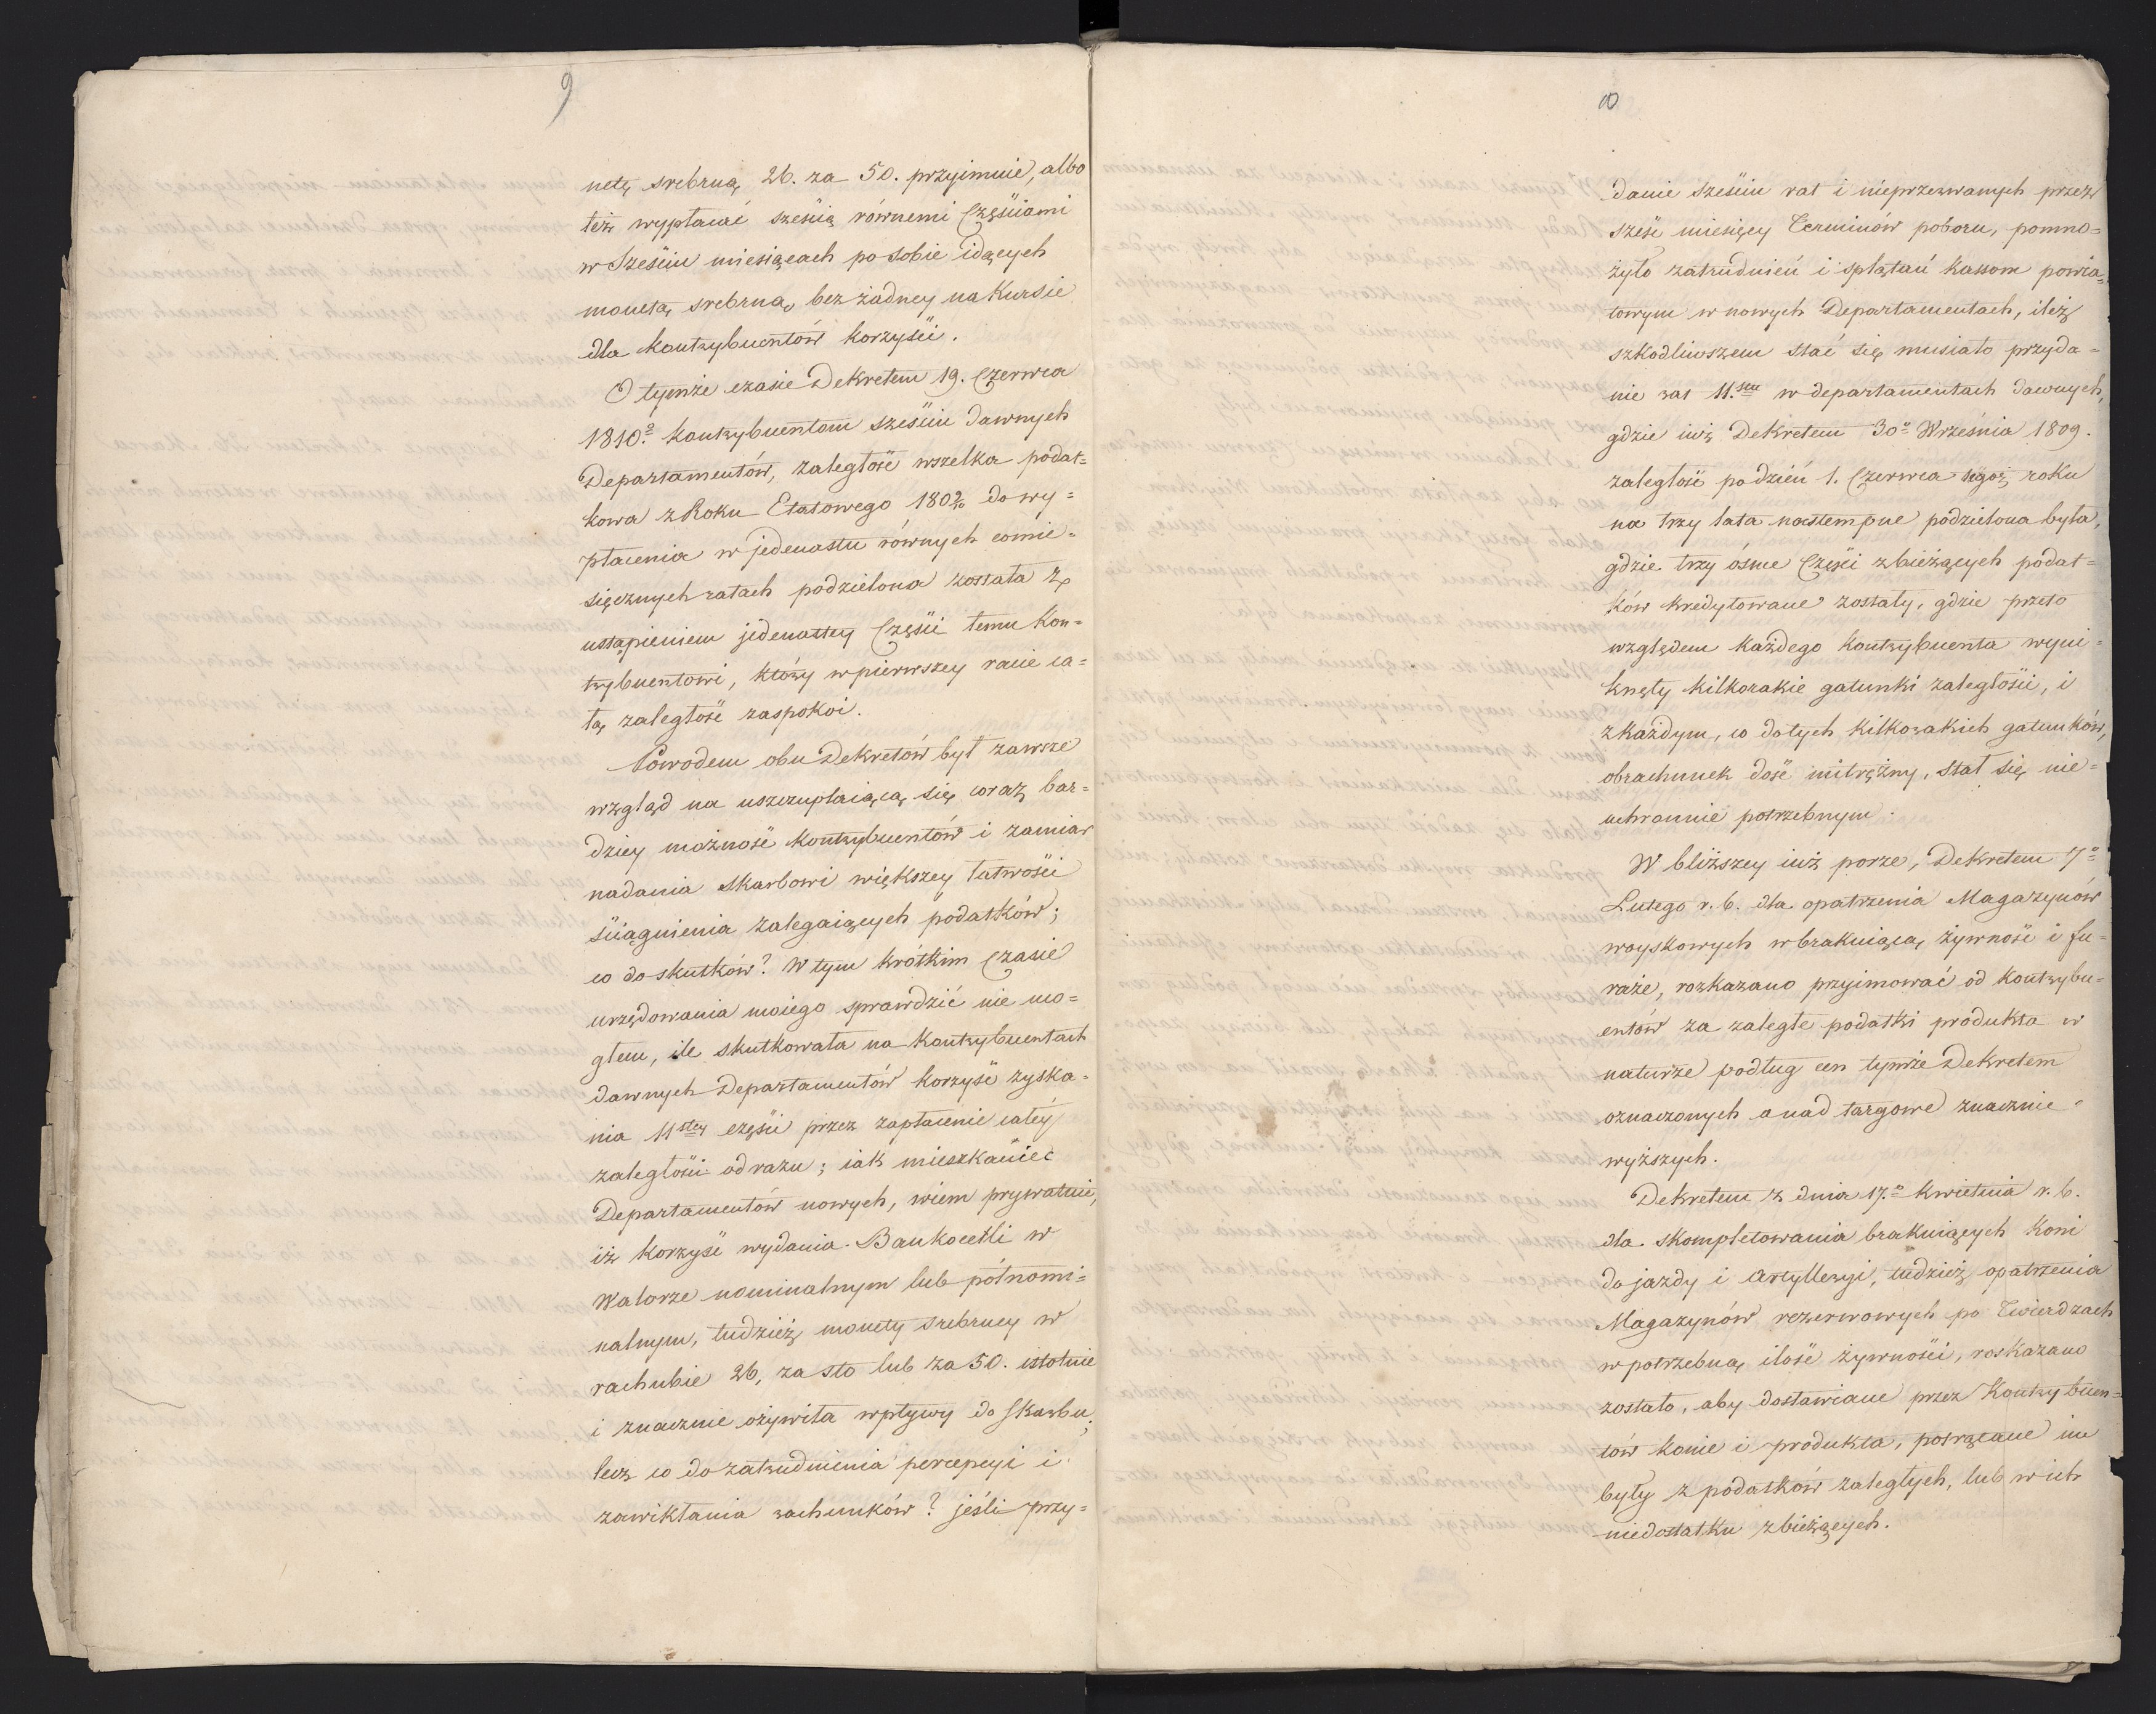 9
netę srebrną 26. za 50. przyimuie, albo
też wypłacać sześcią równemi Częściami
w Sześciu miesiącach po sobie idących
monetą srebrną, bez żadney na Kursie
dla kontrybuentów korzyści.
O tymże czasie Dekretem 19. Czerwca
1810.o kontrybuentom sześciu dawnych
Departamentów, zaległość wszelka podat=
kowa z Roku Etatowego 1809/10 do wy=
płacenia w jedenastu równych comie=
sięcznych ratach podzielona została z
ustąpieniem jedenastey Części temu kon=
trybuentowi, który w pierwszey racie ca=
łą zaległość zaspokoi.
Powodem obu Dekretów był zawsze
wzgląd na uszczuplaiącą się coraz bar=
dziey możność kontrybuentów i zamiar
nadania skarbowi większey łatwości
ściągnienia zalegaiących podatków;
co do skutków? W tym krótkim Czasie
urzędowania moiego sprawdzić nie mo=
głem, ile skutkowała na kontrybuentach
dawnych Departamentów korzyść zyska=
nia 11stey części przez zapłacenie całey
zaległości od razu; iak mieszkaniec
Departamentów nowych, wiem prywatnie,
iż korzyść wydania Bankocetli w
Walorze nominalnym lub półnomi=
nalnym, tudzież monety srebrney w
rachubie 26, za sto lub za 50. istotnie
i znacznie ożywiła wpływy do Skarbu;
lecz co do zatrudnienia percepcyi i
zawikłania rachunków? jeśli przy=
10
danie sześciu rat i nieprzerwanych przez
sześć miesięcy Terminów poboru, pomno=
żyło zatrudnień i splątań kassom powia=
towym w nowych Departamentach, ileż
szkodliwszem stać się musiało przyda=
nie rat 11.stu w departamentach dawnych,
gdzie iuż Dekretem 30o Września 1809.
zaległość po dzień 1. Czerwca tegoż roku
na trzy lata nastempne podzielona była,
gdzie trzy ósme Części z bieżących podat=
ków kredytowane zostały, gdzie przeto
względem każdego kontrybuenta wyni=
knęły kilkorakie gatunki zaległości, i
z każdym, co do tych kilkorakich gatunków,
obrachunek dość mitrężny, stał się nie=
uchronnie potrzebnym.
W bliższey iuż porze, Dekretem 7o
Lutego r. b. dla opatrzenia Magazynów
woyskowych w brakuiącą żywność i fu=
raże, rozkazano przyimować od kontrybu=
entów za zaległe podatki produkta w
naturze podług cen tymże Dekretem
oznaczonych a nad targowe znacznie
wyższych.
Dekretem z dnia 17.o Kwietnia r. b.
dla skompletowania brakuiących koni
do jazdy i Artylleryi, tudzież opatrzenia
Magazynów rezerwowych po Twierdzach
w potrzebną ilość żywności, roskazano
zostało, aby dostawiane przez Kontrybuen=
tów konie i produkta, potrącane im
były z podatków zaległych, lub w ich
niedostatku z bieżących.